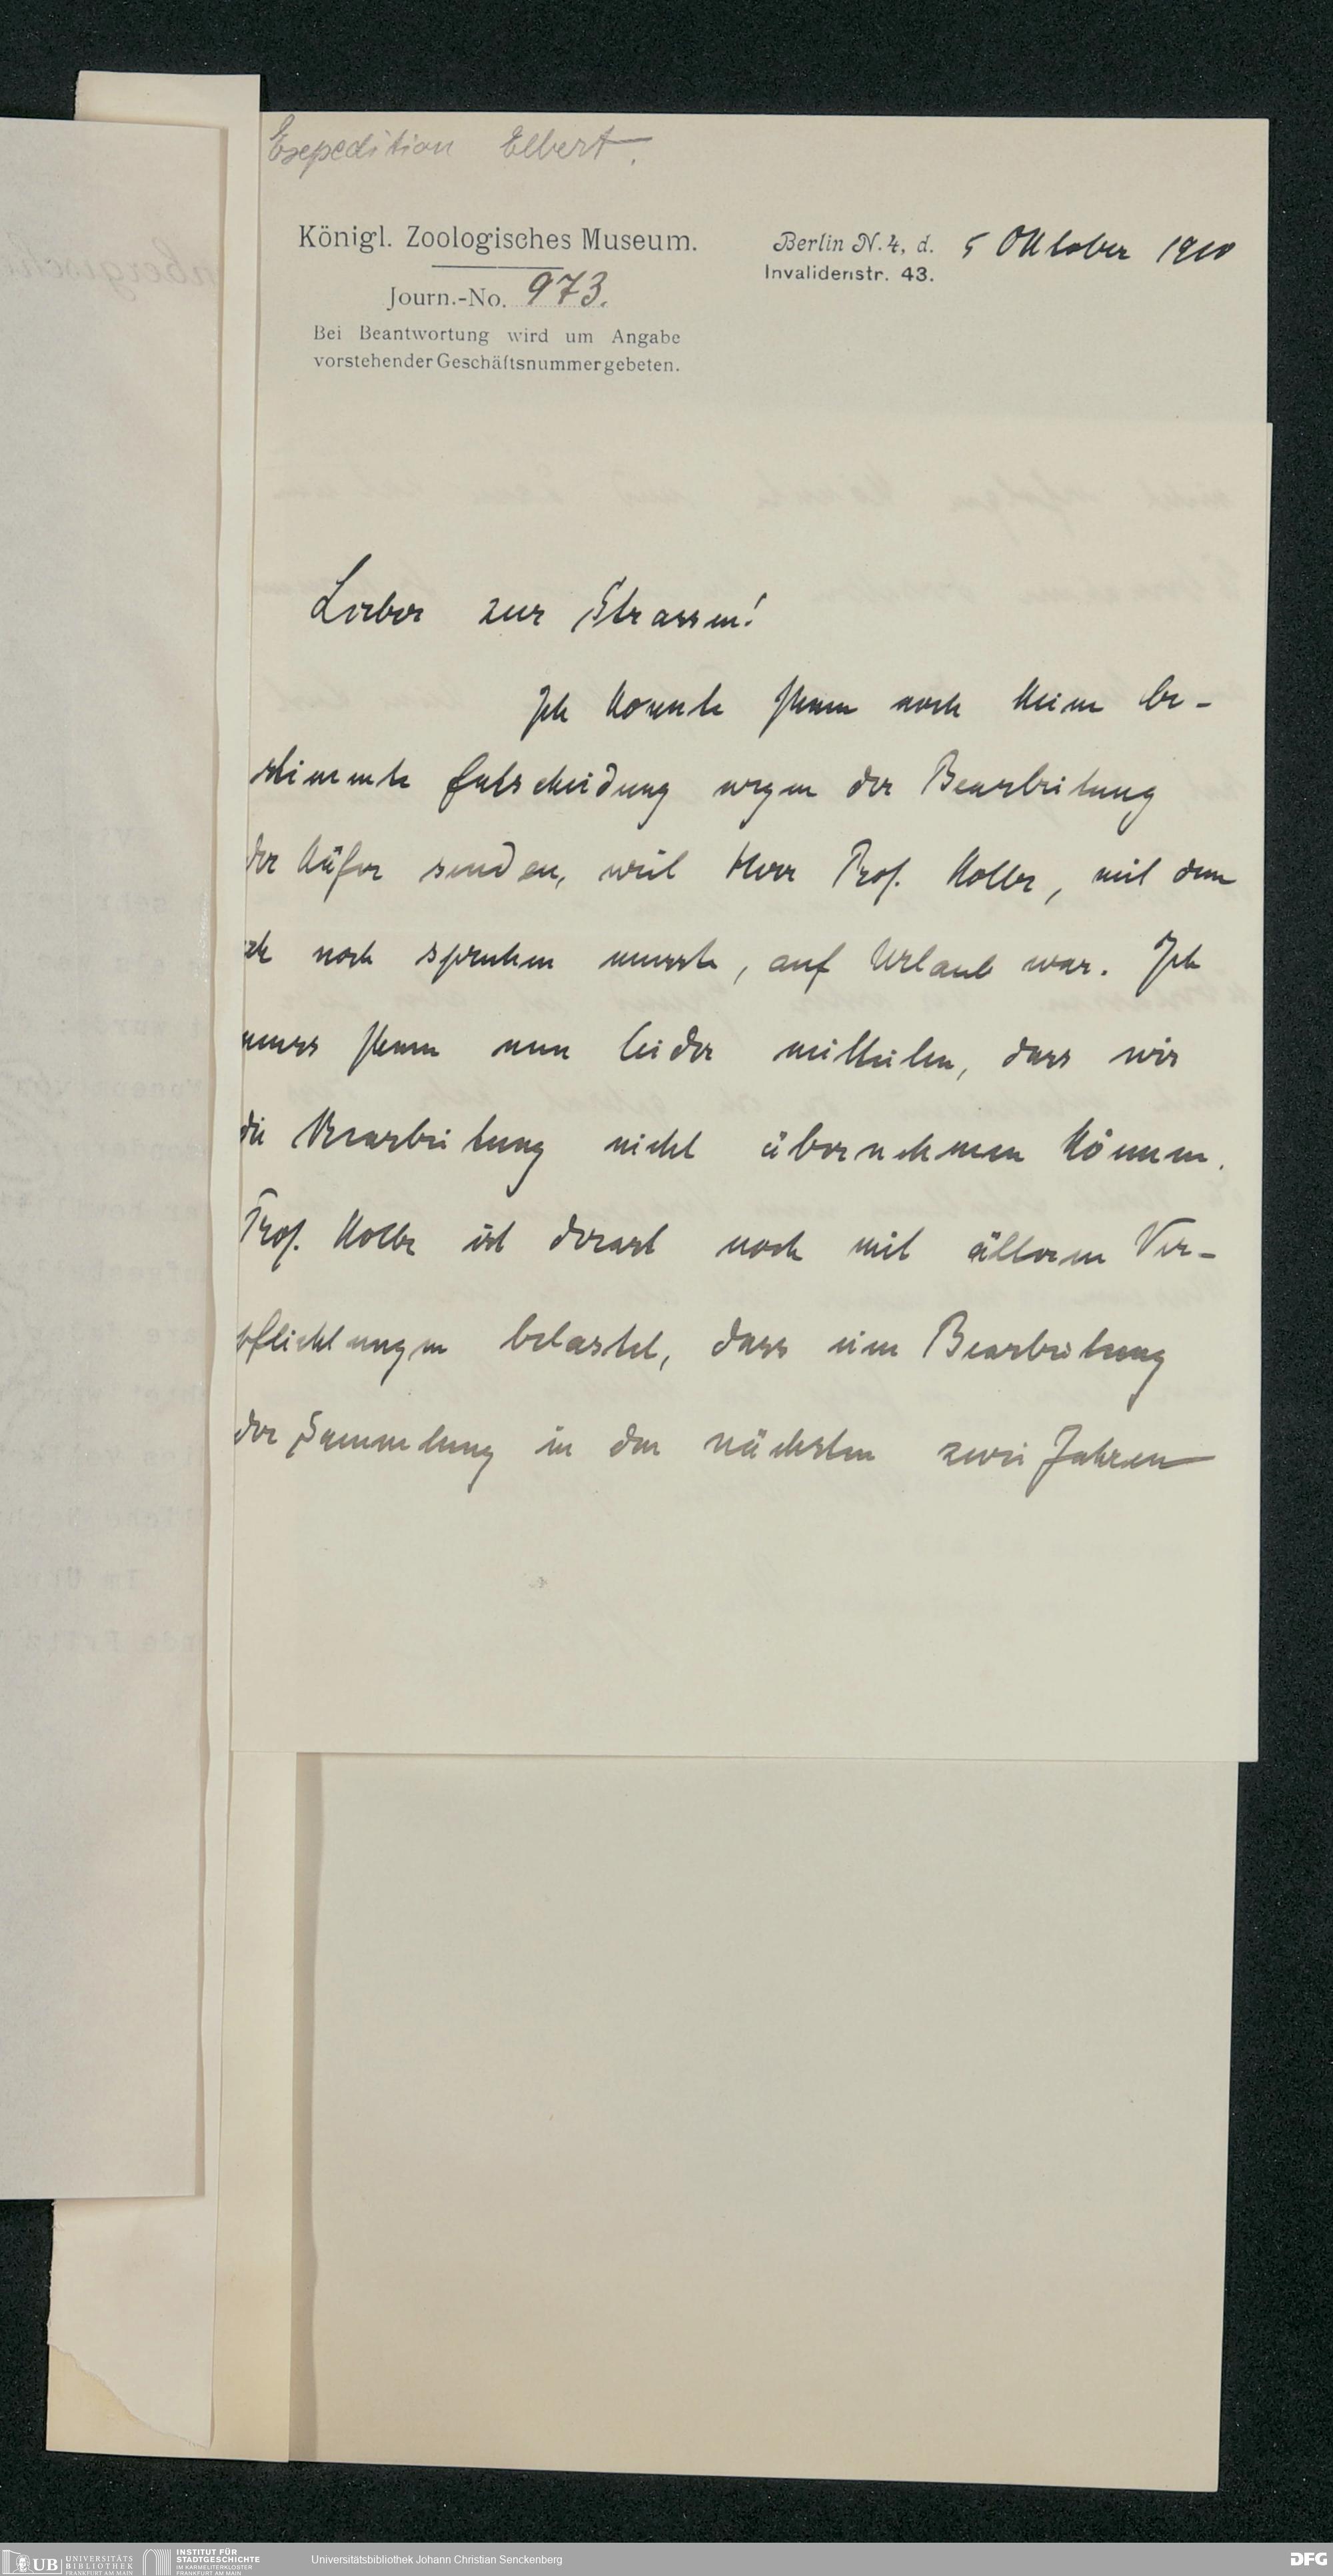 Expedition Elbert.
Königl. Zoologisches Museum.
Journ.-No. 973.
Bei Beantwortung wird um Angabe
vorstehender Geschäftsnummer gebeten.
Berlin N. 4, d. 5 Oktober 1910
Invalidenstr. 43.
Lieber zur Strassen!
Ich konnte Ihnen noch keine be-
stimmte Entscheidung wegen der Bearbeitung
der Käfer senden, weil Herr Prof. Kolbe, mit dem
ich noch sprechen musste, auf Urlaub war. Ich
muss Ihnen nun leider mitteilen, dass wir
die Bearbeitung nicht übernehmen können.
Prof. Kolbe ist derart noch mit älteren Ver-
pflichtungen belastet, dass eine Bearbeitung
der Sammlung in den nächsten zwei Jahren
UB UNIVERSITÄTS
BIBLIOTHEK
FRANKFURT AM MAIN
INSTITUT FÜR
STADTGESCHICHTE
IM KARMELITERKLOSTER
FRANKFURT AM MAIN
Universitätsbibliothek Johann Christian Senckenberg
DFG